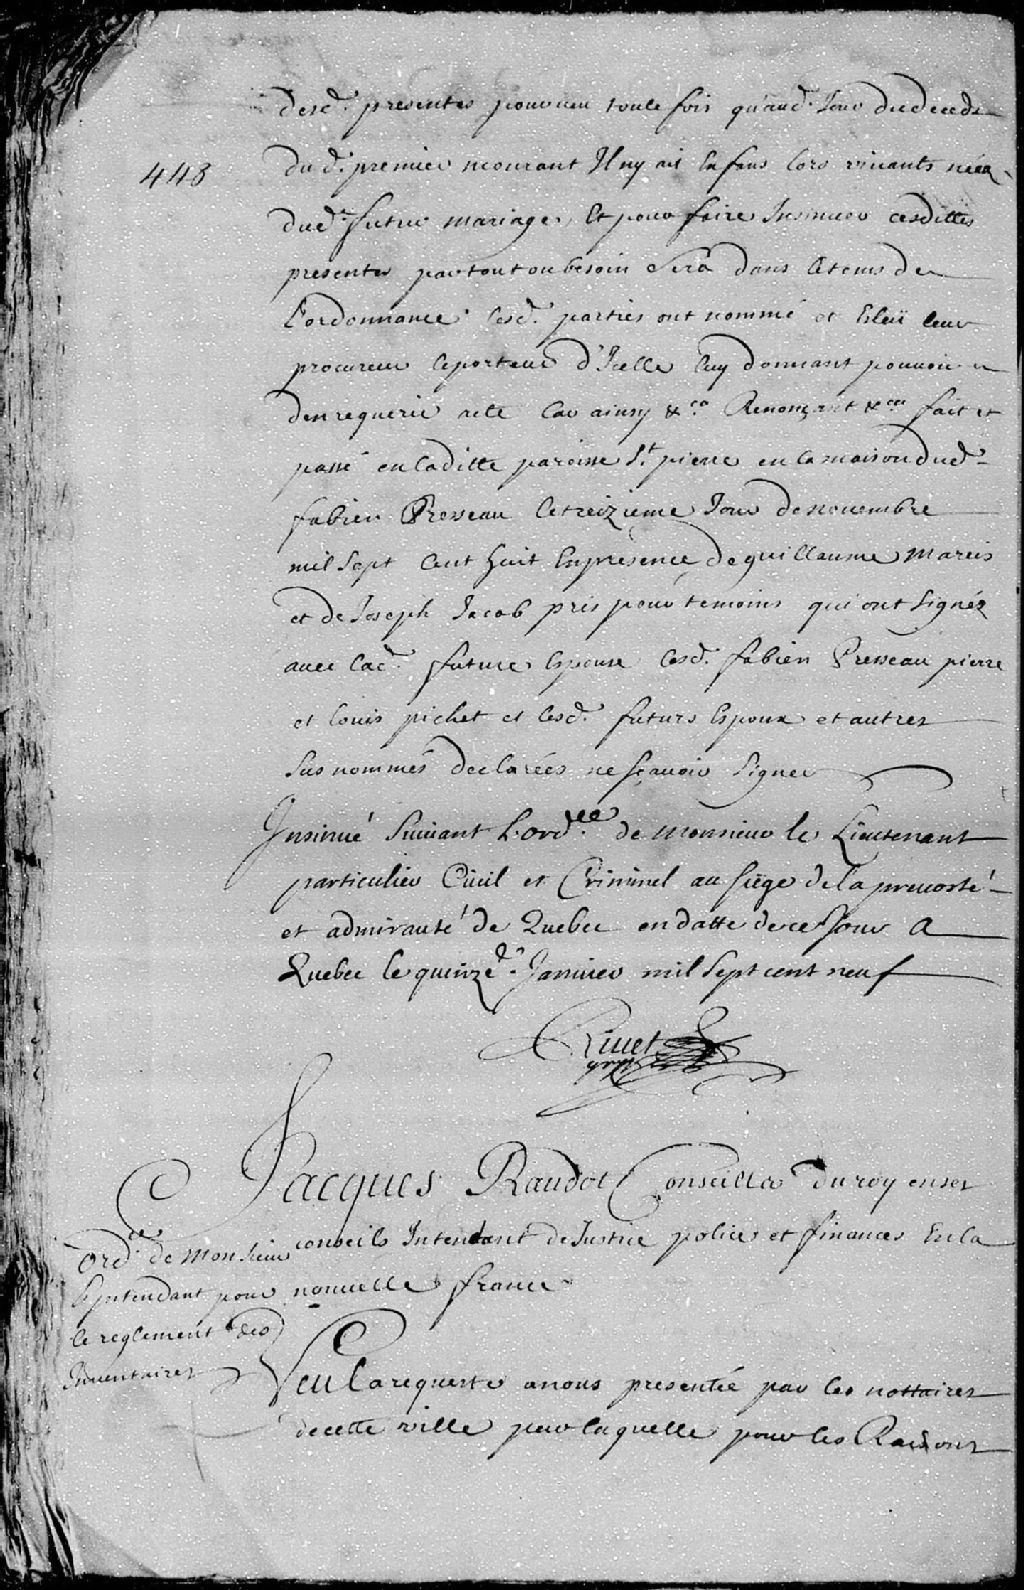 desd. presentes pourueu toute fois qu'aud. Jour du deceds
448
dud. premier mourant Il ny ait Enfans lors viuants néez
dud. futur mariage, Et pour faire Insinuer cesdittes
presentes partout ou besoin Sera dans le tems de
L'ordonnance lesd. parties ont nommé et Esleü leur
procureur le porteur d'Icelle luy donnant pouuoir
den requerir acte Car ainsy &ca Renonçant &ca fait et
passé en laditte paroisse St. pierre en la maison dud.
fabien Presseau le treizieme Jour de nouembre
mil Sept Cent huit En presence de guillaume Mareis
et de Joseph Jacob pris pour temoins qui ont Signéz
auec lad. future Espouse lesd. fabien Presseau pierre
et louis pichet et lesd. futurs Espoux et autres
Sus nommés declarées ne sçauoir Signer
Insinué Suiuant L'ord.ce de Monsieur le Lieutenant
particulier Ciuil et Criminel au siege de la preuosté
et admirauté de Quebec en datte de ce Jour A
Quebec le quinze d. Januier mil Sept cent neuf
Riuet
Jacques Raudot Conseiller du roy en ses
conseils Intendant de Justice police et finances En la
nouuelle france
Ord.ce de Monsieur
l'Jntendant pour
le reglement des
Jnuentaires
Veu La requeste a nous presentée par les nottaires
de cette ville par laquelle pour les Raisons